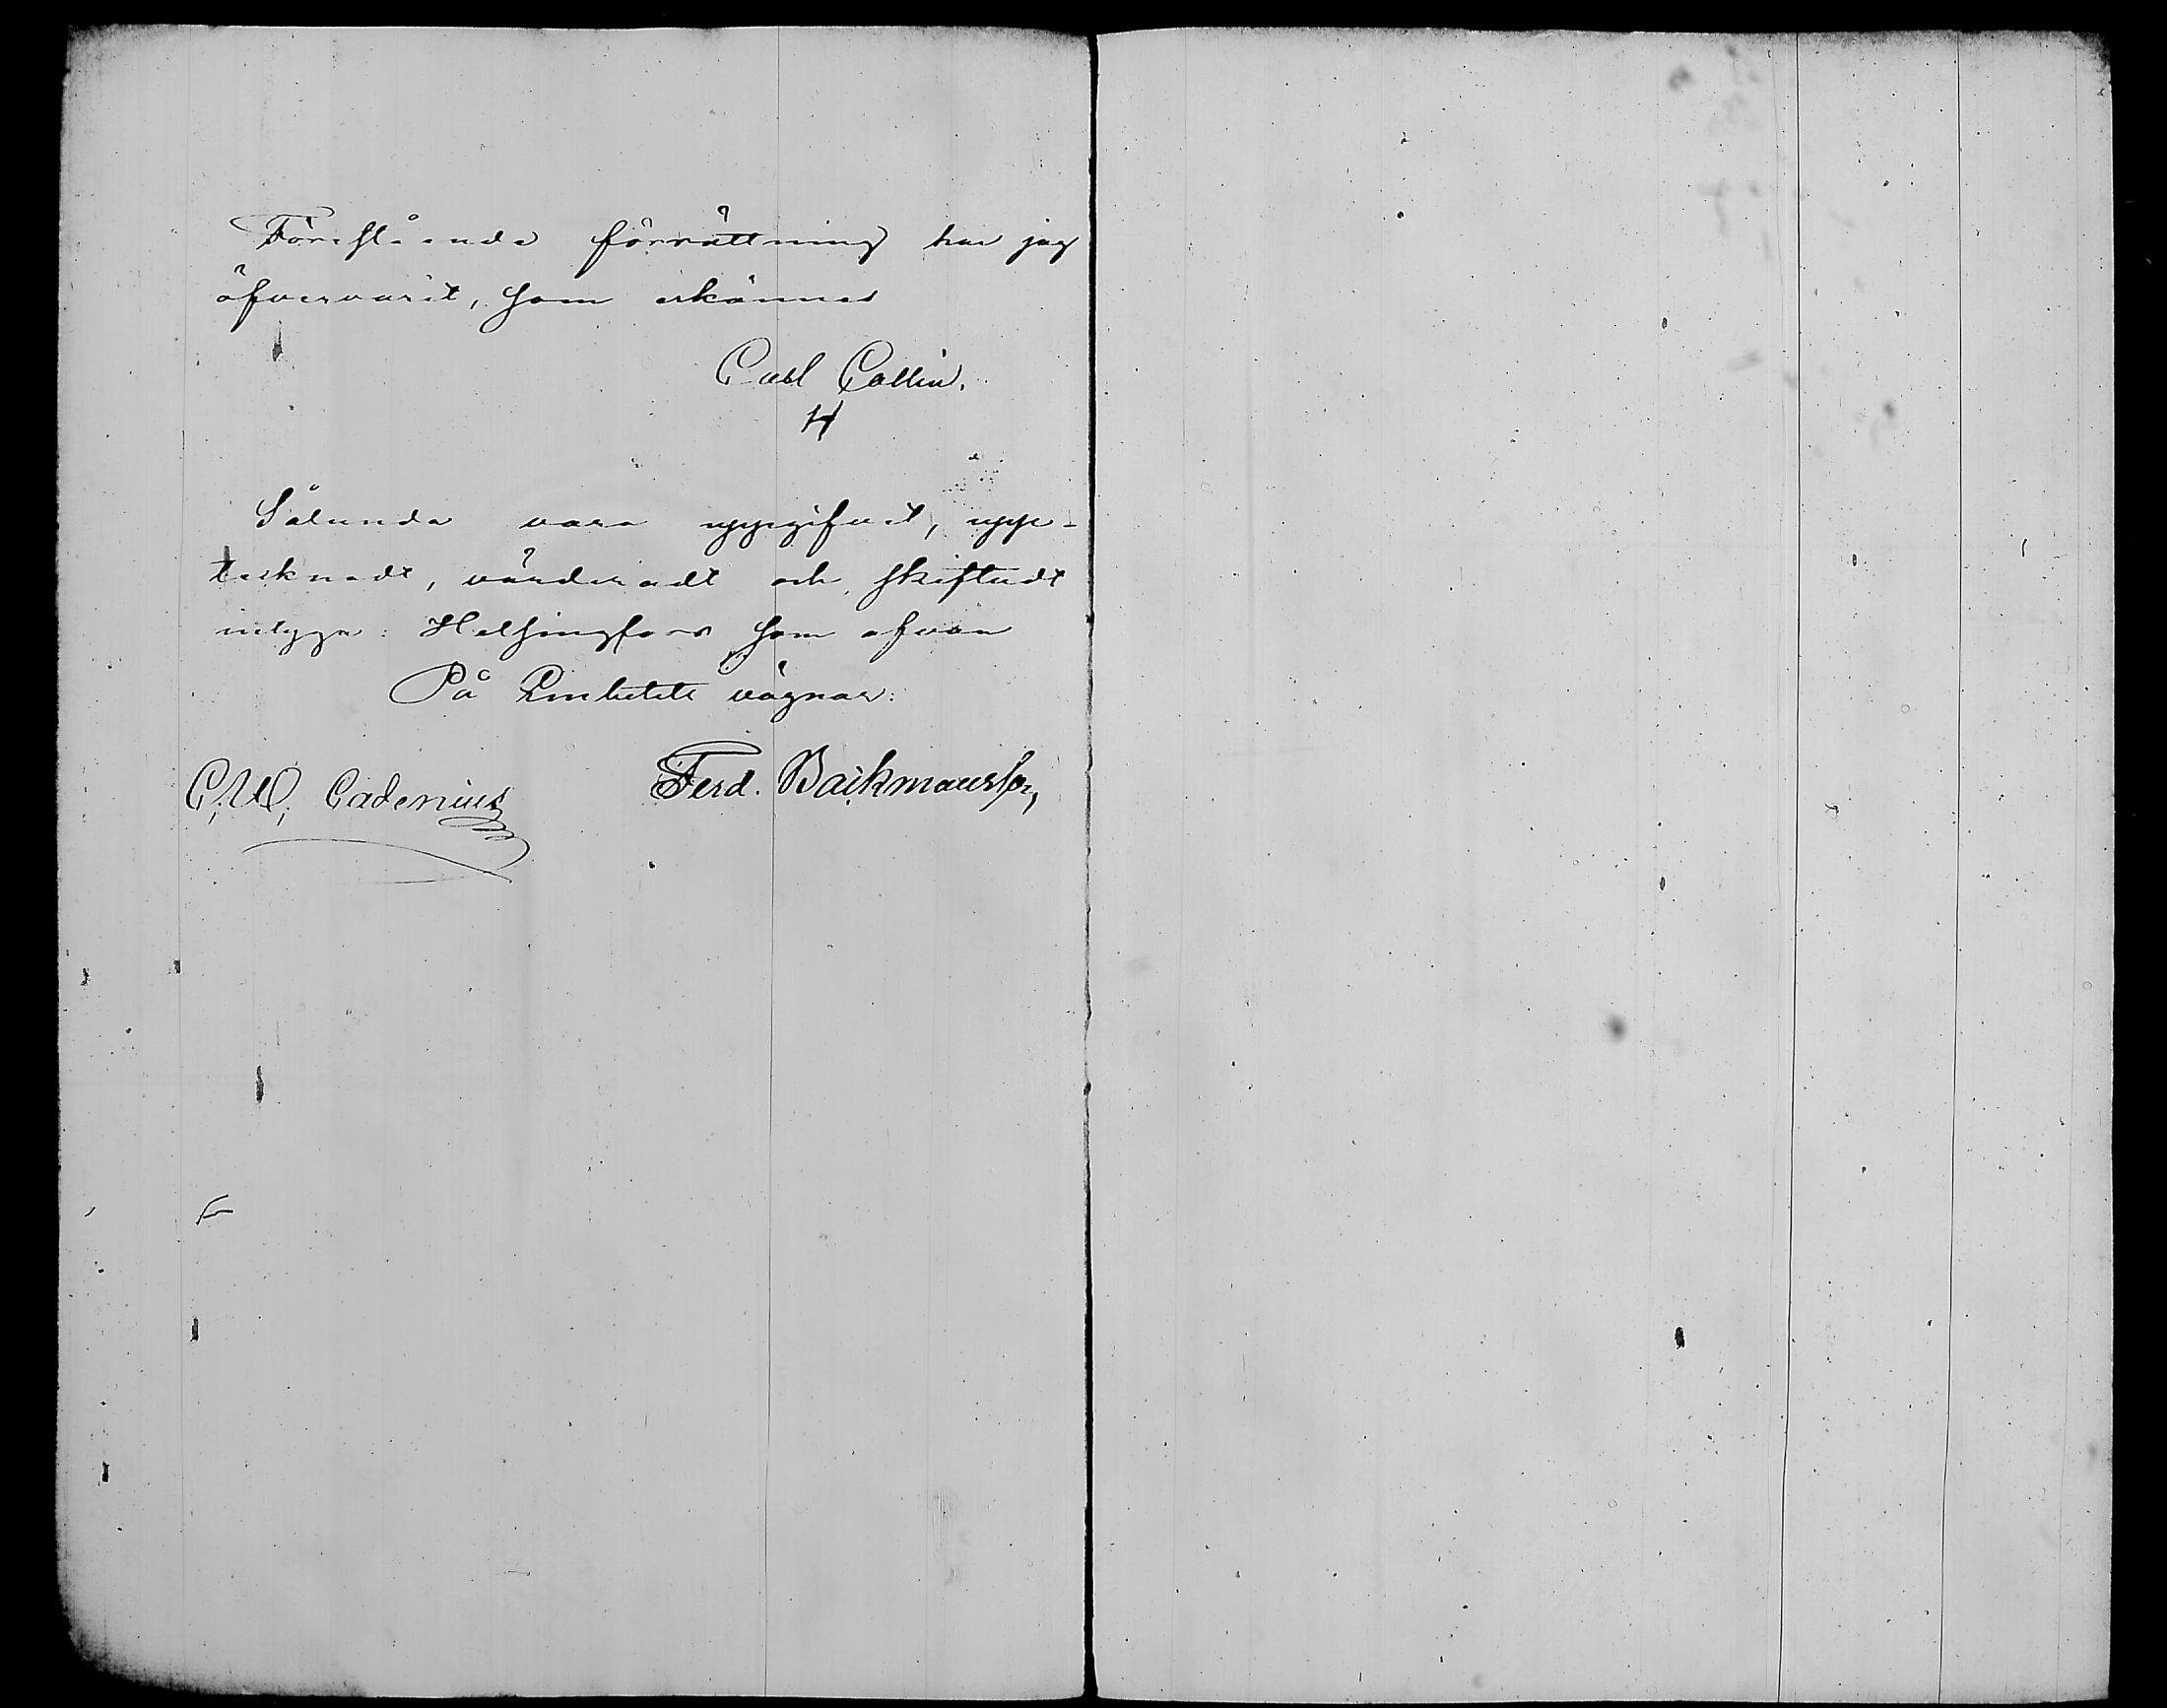 Förestående förrättning har jag
öfvervarit, som erkännes
Carl Collin.
Sålunda vara uppgifvet, upp-
tecknadt, värderadt och skiftadt
intyga: Helsingfors som ofvan
På Embetets vägnar:
C. W. Cadenius Ferd. Backmansson,